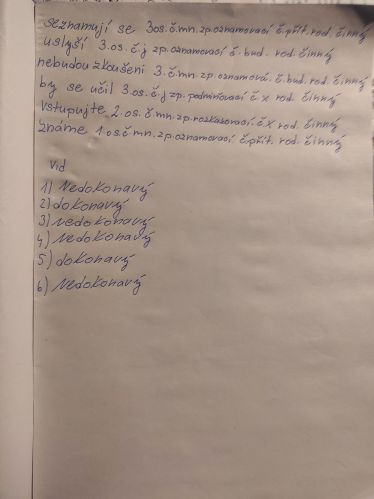 seznamují se 3os.č.mn.zp.oznamovací č.přít.rod.činný
uslyší 3.os.č.j zp.oznamovací č.bud. rod.činný
nebudou zkoušeni 3.č.mn.zp.oznamová.č.bud.rod.činný
by se učil 3.os.č.j zp.podmiňovací č x rod. činný
Vstupujte 2.os.č.mn.zp.rozkazovací.č X rod. činný
známe 1.os.č.mn.zp.oznamovací č.přít. rod. činný
Vid
1) Nedokonavý
2) dokonavý
3) nedokonavý
4) Nedokonavý
5) dokonavý
6) Nedokonavý